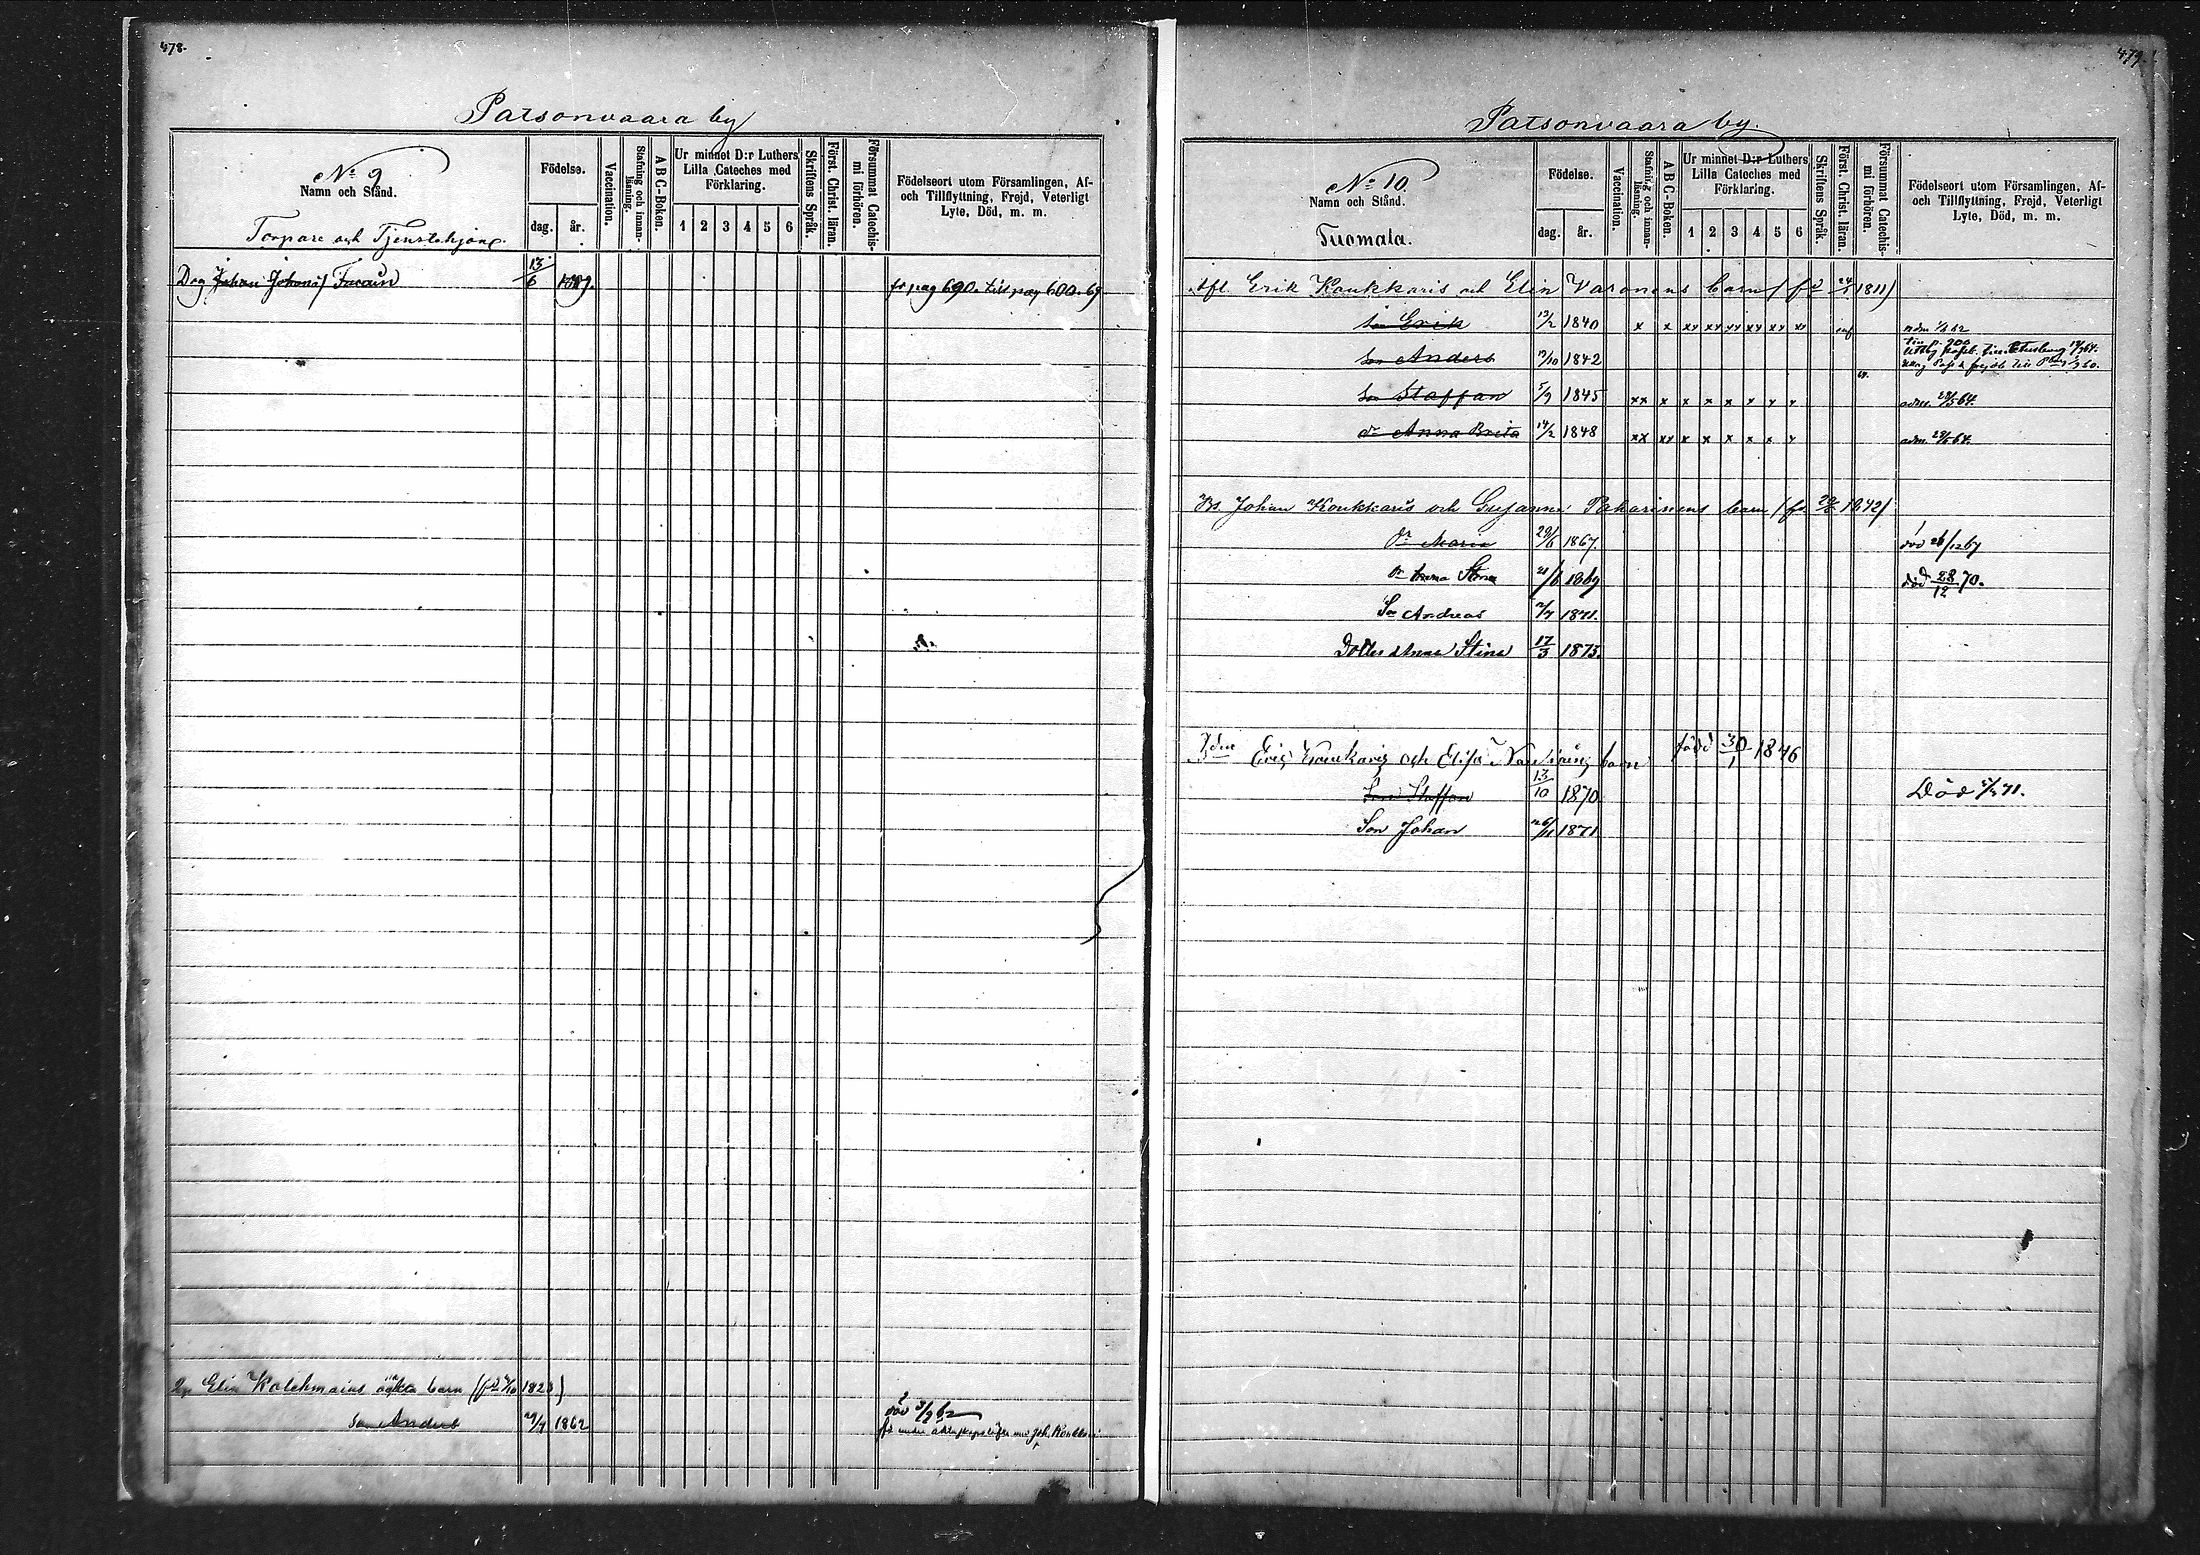 478.
Patsonvaara by
No 9
Namn och Stånd.
Torpare och Tjenstehjon
Födelse.
dag. år.
Vaccination.
Stafning och innanläsning.
ABC-Boken.
Ur minnet D:r Luthers Lilla Cateches med Förklaring.
1 2 3 4 5 6
Skriftens Språk.
Först. Christ. läran.
Försummat Catechismi förhören.
Födelseort utom Församlingen, Af- och Tillflyttning, Frejd, Veterligt Lyte, Död, m. m.
Drg Johan Johans 13/6 fr pag 690. till pag 600. 69
Elin Kolehmains oäkta barn
Son Anders 29/7 1862 död 3/9 62
479.
Patsonvaara by.
No 10.
Namn och Stånd.
Tuomala.
Födelse.
dag. år.
Vaccination.
Stafning och innanläsning.
ABC-Boken.
Ur minnet D:r Luthers Lilla Cateches med Förklaring.
1 2 3 4 5 6
Skriftens Språk.
Först. Christ. läran.
Försummat Catechismi förhören.
Födelseort utom Församlingen, Af- och Tillflyttning, Frejd, Veterligt Lyte, Död, m. m.
Erik Koukkaris och Elin Varonens barn 1811)
Son Erik 13/2 1840 x x xx xx xx xx xx xx
Son Anders 13/10 1842
Son Staffan 5/9 1845 xx x x x x x x x adm. 64.
dr Anna Brita 14/2 1848 xx xx x x x x x x adm. 64.
Johan Koukkaris och Susanna Pakarinens barn 1842)
dr Maria 29/6 1867. död 26/12 67
dr Anna Stina 21/6 1869 död 28/12 70.
Son Andreas 1871.
Dotter Anna Stina 17/3 1873.
Eric Koukaris och Elisa barn född 30/1 1846
Son Staffan 13/10 1870 Död 71.
Son Johan 26/11 1871